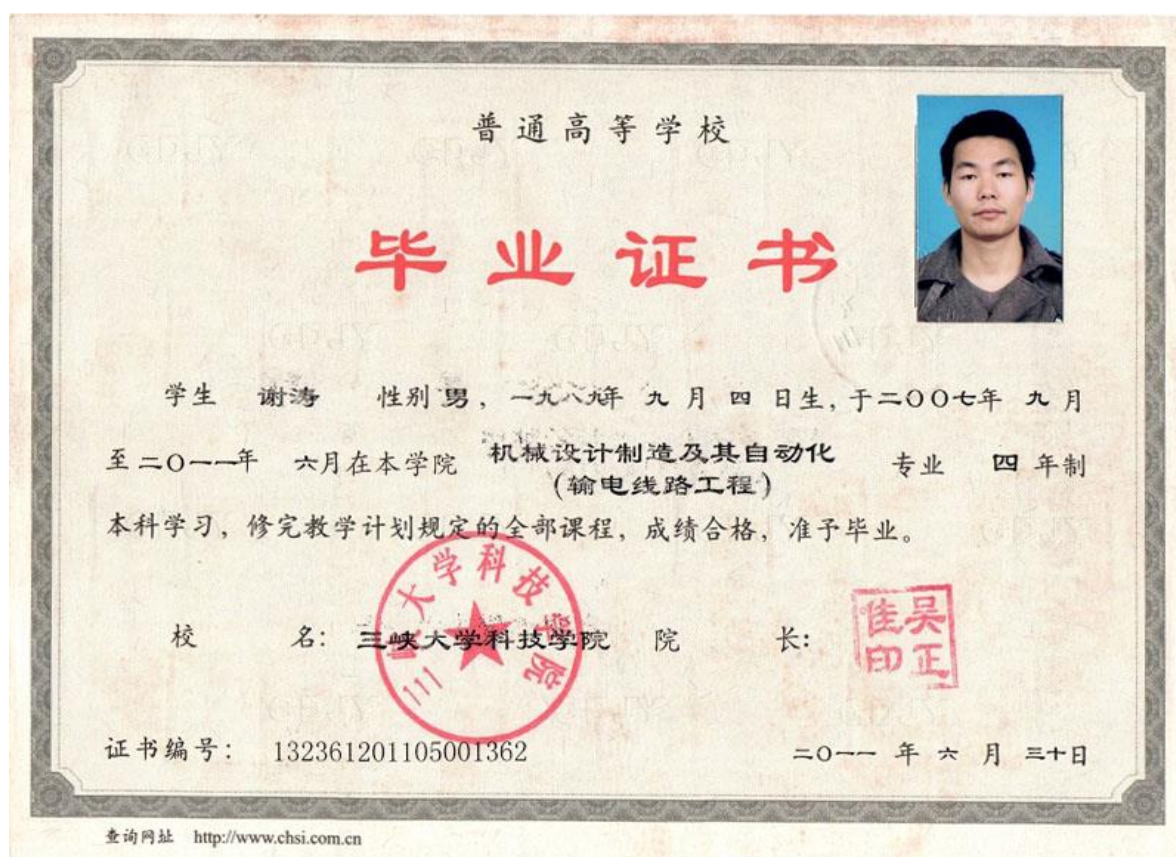 普通高等学校
毕业证书
学生 谢涛 性别 男，一九八九年 九 月 四 日生，于二〇〇七年 九 月
至 二〇一一年 六月在本学院 机械设计制造及其自动化 专业 四 年制
(输电线路工程)
本科学习，修完教学计划规定的全部课程，成绩合格，准予毕业。
三峡大学科技学院
校 名：三峡大学科技学院 院 长：
吴正佳印
证书编号： 132361201105001362 二〇一一 年 六 月 三十日
查询网址 http://www.chsi.com.cn